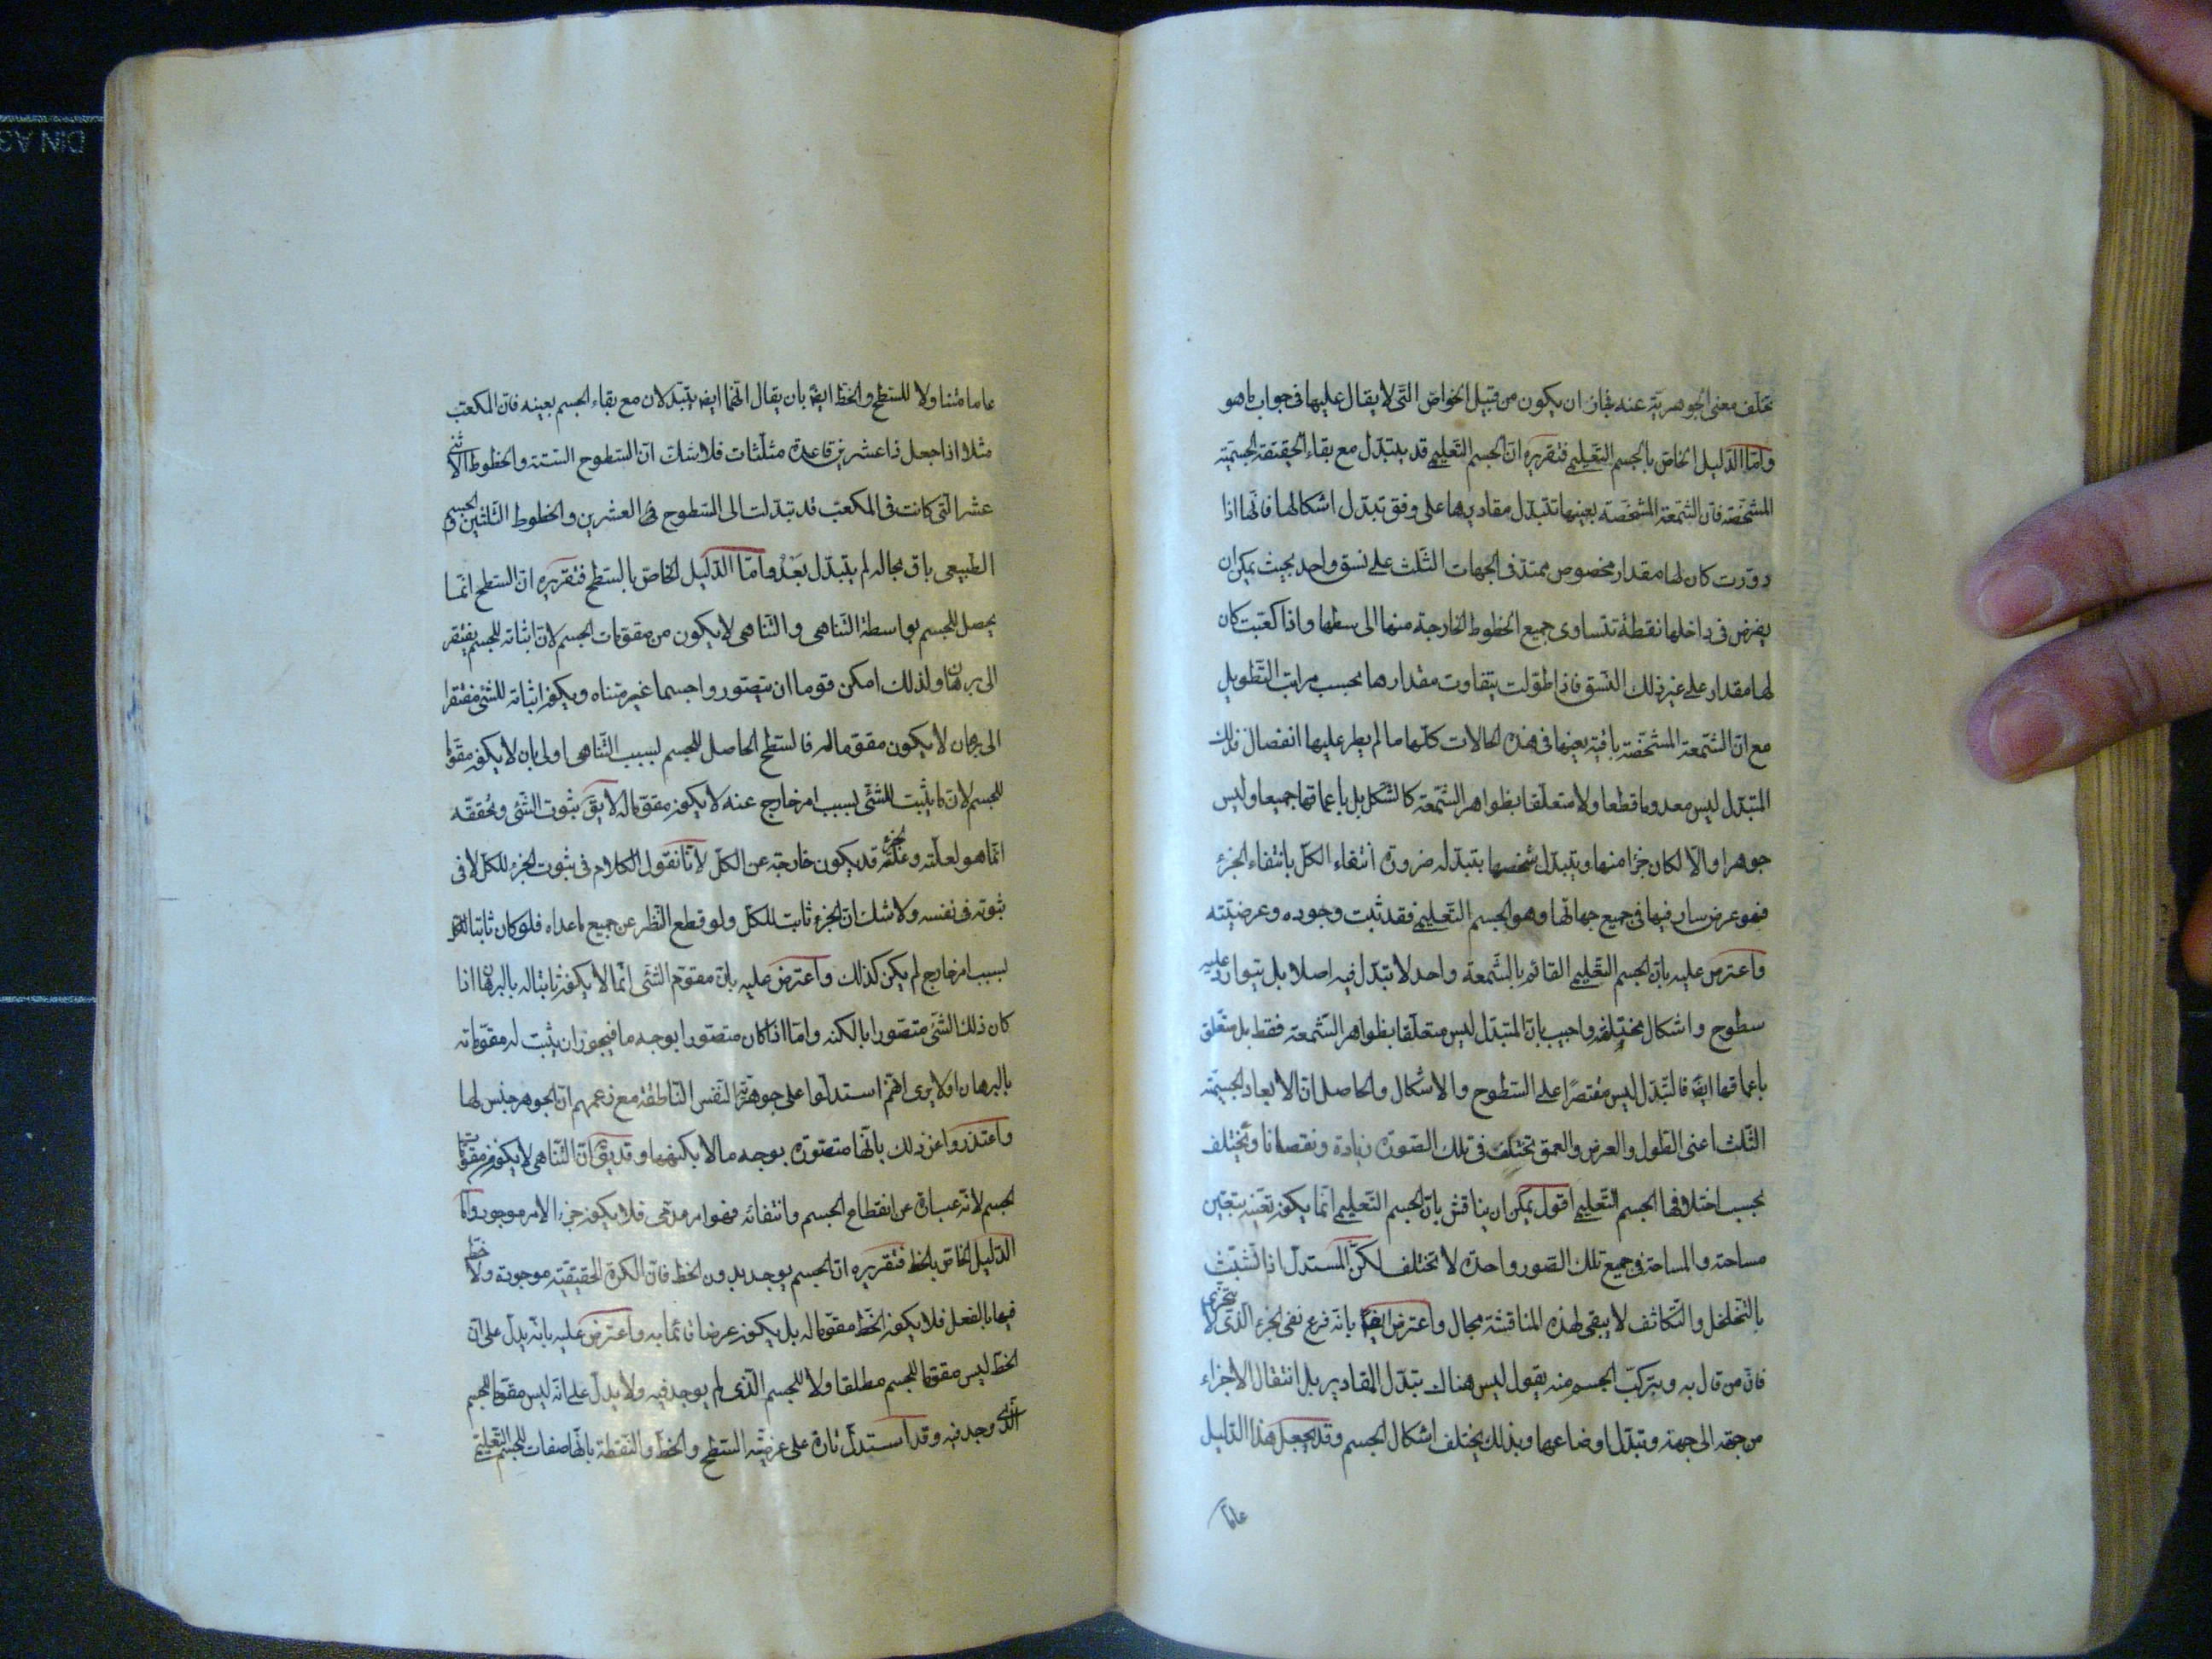 تخلف معنى الجوهرية عنه فجاز ان يكون من قبيل الخواص التى لا يقال عليها فى جواب ما هو
وامّا الدّليل الخاص بالجسم التعليمى فتقريره انّ الجسم التعليمى قد يتبدّل مع بقاء الحقيقة الجسمية
المشخّصة فان الشّمعة المشخصة بعينها تتبدّل مقاديرها على وفق تبدّل اشكالها فانّها اذا
دوّرت كان لها مقدار مخصوص ممتد فى الجهات الثّلث على نسق واحد بحيث يمكن ان
يفرض فى داخلها نقطة تتساوى جميع الخطوط الخارجة منها الى سطحها واذا كعّبت كان
لها مقدار على غير ذلك النّسق فاذا طوّلت يتفاوت مقدارها بحسب مراتب التّطويل
مع انّ الشّمعة المشخّصة باقية بعينها فى هذه الحالات كلّها ما لم يطر عليها انفصال فذلك
المتبدّل ليس معدوما قطعا ولا متعلّقا بظواهر الشّمعة كالشّكل بل باعماقها جميعا وليس
جوهرا والّا لكان جزءا منها ويتبدّل شخصها بتبدّله ضرورة انتفاء الكلّ بانتفاء الجزء
فهو عرض سار فيها فى جميع جهاتها وهو الجسم التّعليمى فقد ثبت وجوده وعرضيّته
واعترض عليه بانّ الجسم التعليمى القائم بالشّمعة واحد لا تبدّل فيه اصلا بل يتوارد عليه
سطوح واشكال مختلفة واجيب بانّ المتبدّل ليس متعلّقا بظواهر الشّمعة فقط بل متعلّق
باعماقها ايضا فالتّبدّل ليس مقتصرًا على السّطوح والاشكال والحاصل انّ الابعاد الجسميّة
الثّلث اعنى الطّول والعرض والعمق تختلف فى تلك الصّورة زيادة ونقصانا ويختلف
بحسب اختلافها الجسم التّعليمى اقول يمكن ان يناقش بانّ الجسم التّعليمى انّما يكون تعيّنه بتعيّن
مساحته والمساحة فى جميع تلك الصّور واحدة لا تختلف لكنّ المستدلّ اذا تشبّث
بالتّخلخل والتّكاثف لا يبقى لهذه المناقشة مجال واعترض ايضًا بانّه فرع نفى الجزء الّذى لا يتجزى
فانّ من قال به وبتركّب الجسم منه يقول ليس هناك تبدّل المقادير بل انتقال الاجزاء
من جهة الى جهة وتبدّل اوضاعها وبذلك يختلف اشكال الجسم وقد يجعل هذا الدّليل
عاما
عاما متناولا للسّطح والخطّ ايضًا بان يقال انّهما ايضا يتبدّلان مع بقاء الجسم بعينه فانّ المكعّب
مثلا اذا جعل ذا عشرين قاعدة مثلّثات فلا شك انّ السّطوح السّتة والخطوط الاثنى
عشر الّتى كانت فى المكعّب قد تبدّلت الى السّطوح العشرين والخطوط الثّلثين والجسم
الطّبيعى باق بحاله لم يتبدّل بَعْدُ وامّا الدّليل الخاصّ بالسّطح فتقريره انّ السّطح انّما
يحصل للجسم بواسطة التّناهى والتّناهى لا يكون من مقوّمات الجسم لانّ اثباته للجسم يفتقر
الى برهان ولذلك امكن قوما ان يتصوّروا جسما غير متناه ويكون اثباته للشّئ مفتقرا
الى برهان لا يكون مقوّما له فالسّطح الحاصل للجسم بسبب التّناهى اولى بان لا يكون مقوّما
للجسم لانّ ما يثبت للشّئ بسبب امر خارج عنه لا يكون مقوّما له لا يق ثبوت الشّئ وتحققه
انّما هو لعلّته وعلّة الجزء قد يكون خارجة عن الكلّ لانّا نقول الكلام فى ثبوت الجزء للكلّ لا فى
ثبوته فى نفسه ولا شك انّ الجزء ثابت للكلّ ولو قطع النّظر عن جميع ما عداه فلو كان ثابتا له
بسبب امر خارج لم يكن كذلك واعترض عليه بانّ مقوّم الشّئ انّما لا يكون ثابتا له بالبرهان اذا
كان ذلك الشّئ متصوّرا بالكنه وامّا اذا كان متصوّرا بوجه ما فيجوز ان يثبت له مقوّماته
بالبرهان اولا يرى انّهم استدلّوا على جوهريّة النّفس النّاطقة مع زعمهم انّ الجوهر جنس لها
واعتذروا عن ذلك بانّها متصوّرة بوجه ما لا بكنهها وقد يق انّ التّناهى لا يكون من مقوّمات
الجسم لانّه عبارة عن انقطاع الجسم وانتفائه فهو امر عدمى فلا يكون جزءا لامر موجود وامّا
الدّليل الخاصّ بالخط فتقريره انّ الجسم يوجد بدون الخط فانّ الكرة الحقيقيّة موجودة ولا خط
فيها بالفعل فلا يكون الخطّ مقوّما له بل يكون عرضا قائما به واعترض عليه بانّه يدلّ على انّ
الخطّ ليس مقوّما للجسم مطلقا ولا للجسم الّذى لم يوجد فيه ولا يدلّ على انّه ليس مقوّما للجسم
الّذى وجد فيه وقد استدلّ تارة على عرضيّة السّطح والخطّ والنّقطة بانّها صفات للجسم التّعليمى